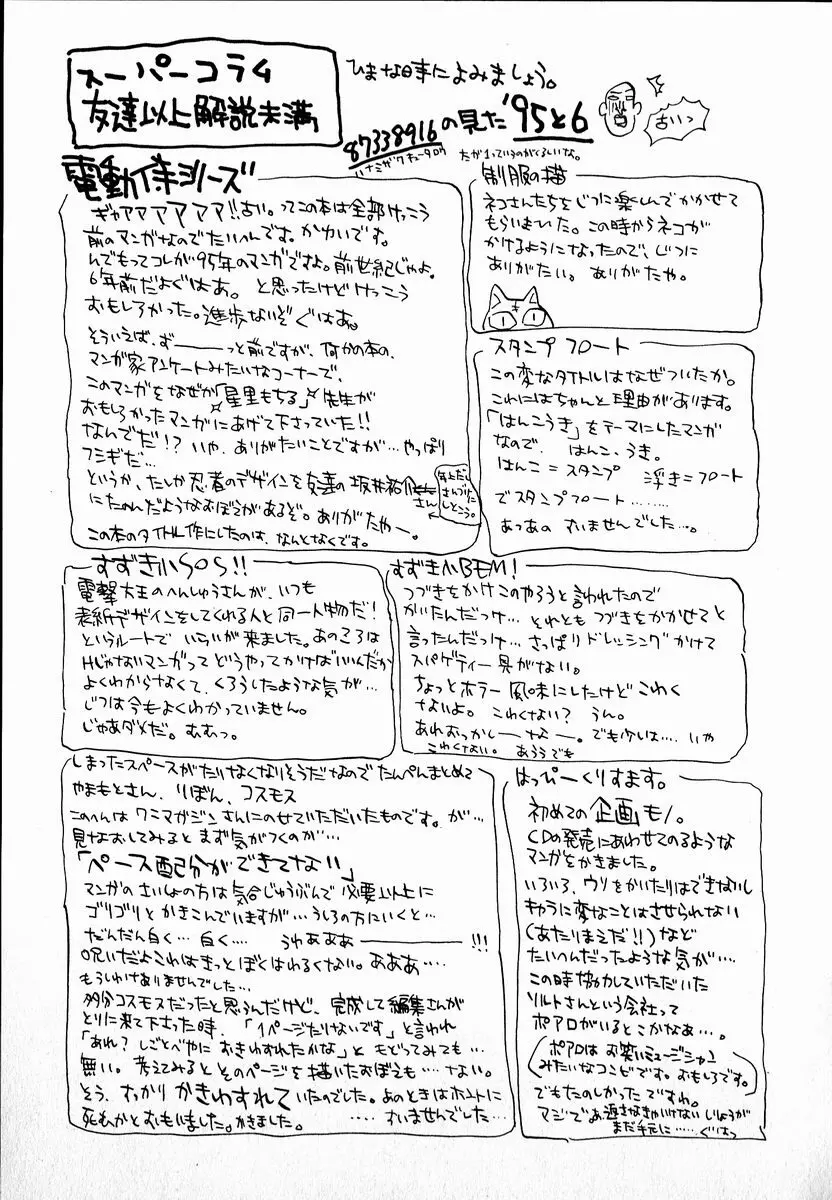 スーパーコラム
友達以上解説未満
ひまな時によみましょう。
87338916の見た'95と6
ハナミザワキュータロウ
たが1っていうのがくるしいな。
古いっ
電動侍シリーズ
ギャアアアアアア!!古い。ってこの本は全部けっこう
前のマンガなのでたいへんです。かわいです。
んでもってコレが95年のマンガですよ。前世紀じゃよ。
6年前だよぐはあ。と思ったけどけっこう
おもしろかった。進歩ないぞぐはあ。
そういえば、ず―――っと前ですが、何かの本の、
マンガ家アンケートみたいなコーナーで、
このマンガをなぜか「星里もちる」先生が
おもしろかったマンガにあげて下さっていた!!
なんでだ!?いや、ありがたいことですが…やっぱり
フシギだ…
というか、たしか忍者のデザインを友達の坂井祐介さん
にたのんだようなおぼえがあるぞ。ありがたやー。
年上だし
さんづけに
しとこう。
この本のタイトル作にしたのは、なんとなくです。
制服の猫
ネコさんたちをじつに楽しんでかかせて
もらいました。この時からネコが
かけるようになったので、じつに
ありがたい。ありがたや。
スタンプフロート
この変なタイトルはなぜついたか。
これにはちゃんと理由があります。
「はんこうき」をテーマにしたマンガ
なので、はんこ、うき。
はんこ=スタンプ 浮き=フロート
でスタンプフロート………
あっあの すいませんでした…。
すずき小SOS!!
電撃大王のへんしゅうさんが、いつも
表紙デザインをしてくれる人と同一人物だ!
というルートで いらいが来ました。あのころは
Hじゃないマンガって どうやってかけばいいんだか
よくわからなくて、くろうしたような気が…
じつは今もよくわかっていません。
じゃあダメだ。むむっ。
すずき小BEM!
つづきをかけこのやろうと言われたので
かいたんだっけ… それとも つづきをかかせてと
言ったんだっけ… さっぱりドレッシングかけて
スパゲティー具がない。
ちょっとホラー風味にしたけどこわく
ないよ。こわくない? うん。
あれおっかしーなー。でも少しは… いや
こわくない。あろうでも
しまったスペースがたりなくなりそうだなのでたんぺんまとめて
やまもとさん、りぼん、コスモス
このへんは ワニマガジンさんにのせていただいたものです。が…
見なおしてみるとまず気がつくのが…
「ペース配分ができてない」
マンガのさいしょの方は気合じゅうぶんで必要以上に
ゴリゴリとかきこんでいますが…うしろの方にいくと…
だんだん白く…白く… うわあああ―――!!!
呪いだよこれはきっとぼくはわるくない。あああ…
もうしわけありませんでした…
多分コスモスだったと思うんだけど、完成して編集さんが
とりに来て下さった時、「1ページたりないです」と言われ
「あれ?しごとべやに おきわすれたかな」と もどってみても…
無い。考えてみるとそのページを描いたおぼえも…ない。
そう、すっかり かきわすれていたのでした。あのときはホントに
死ぬかとおもいました。かきました。 …すいませんでした…
はっぴーくりすます。
初めての企画モノ。
CDの発売にあわせてのるような
マンガをかきました。
いろいろ、ウリをかいたりはできないし
キャラに変なことはさせられない
(あたりまえだ!!)など
たいへんだったような気が…
この時協力していただいた
ソルトさんという会社って
ポアロがいるとこかなあ…。
(ポアロはお笑いミュージシャン
みたいなコンビです。おもしろです。)
でもたのしかったですわ。
マジであ返さなきゃいけないしりょうが
まだ手元に……ぐはっ